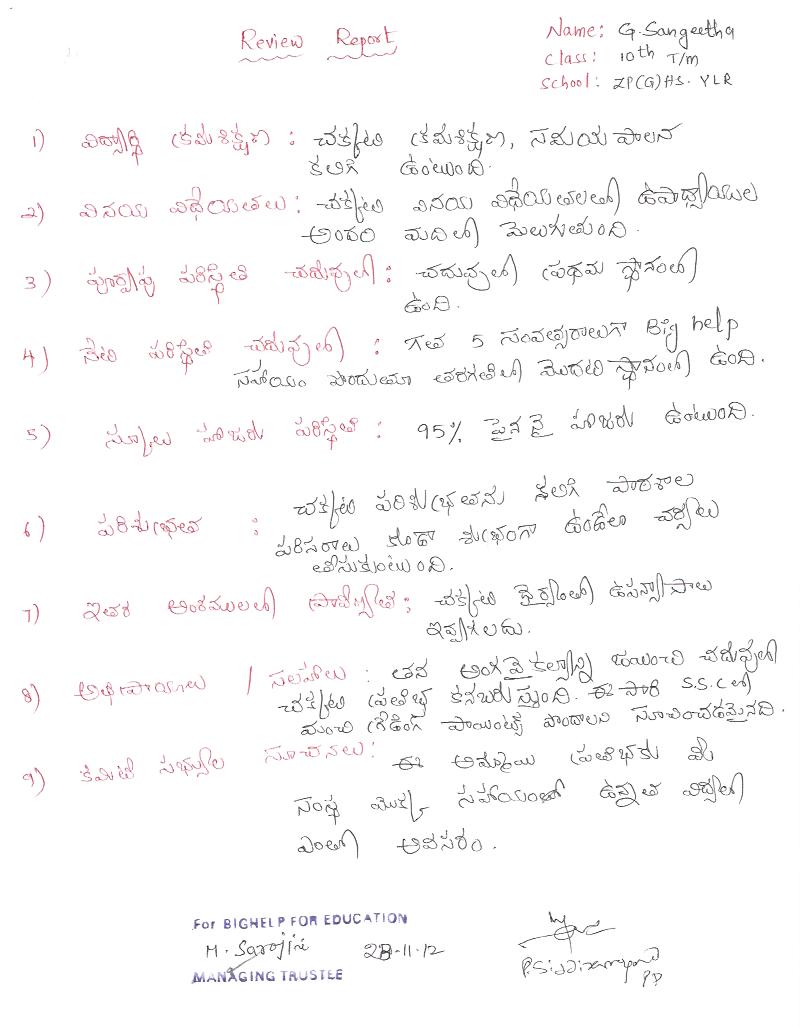 Review Report
Name: G. Sangeetha
Class: 10th T/m
School: ZP(G)HS. YLR
1) విద్యార్థి క్రమశిక్షణ : చక్కటి క్రమశిక్షణ, సమయపాలన
కలిగి ఉంటుంది.
2) వినయ విధేయతలు : చక్కటి వినయ విధేయతలతో ఉపాధ్యాయుల
అందరి మదిలో మెలుగుతుంది.
3) పూర్వపు పరిస్థితి చదువులో : చదువులో ప్రథమ స్థానంలో
ఉంది.
4) నేటి పరిస్థితి చదువులో : గత 5 సంవత్సరాలుగా Big help
సహాయం పొందుతూ తరగతిలో మొదటి స్థానంలో ఉంది.
5) స్కూలు హాజరు పరిస్థితి : 95% పైననే హాజరు ఉంటుంది.
6) పరిశుభ్రత : చక్కటి పరిశుభ్రతను కలిగి పాఠశాల
పరిసరాలు కూడా శుభ్రంగా ఉండేలా చర్యలు
తీసుకుంటుంది.
7) ఇతర అంశములలో ప్రావీణ్యత : చక్కటి ధైర్యంతో ఉపన్యాసాలు
ఇవ్వగలదు.
8) అభిప్రాయాలు / సలహాలు : తన అంగవైకల్యాన్ని జయించి చదువులో
చక్కటి ప్రతిభ కనబరుస్తుంది. ఈ సారి S.S.C లో
మంచి గ్రేడింగ్ పాయింట్స్ పొందాలని సూచించడమైనది.
9) కమిటీ సభ్యుల సూచనలు : ఈ అమ్మాయి ప్రతిభకు మీ
సంస్థ యొక్క సహాయంతో ఉన్నత విద్యలో
ఎంతో అవసరం.
For BIGHELP FOR EDUCATION
M. Sarojini 28-11-12
MANAGING TRUSTEE